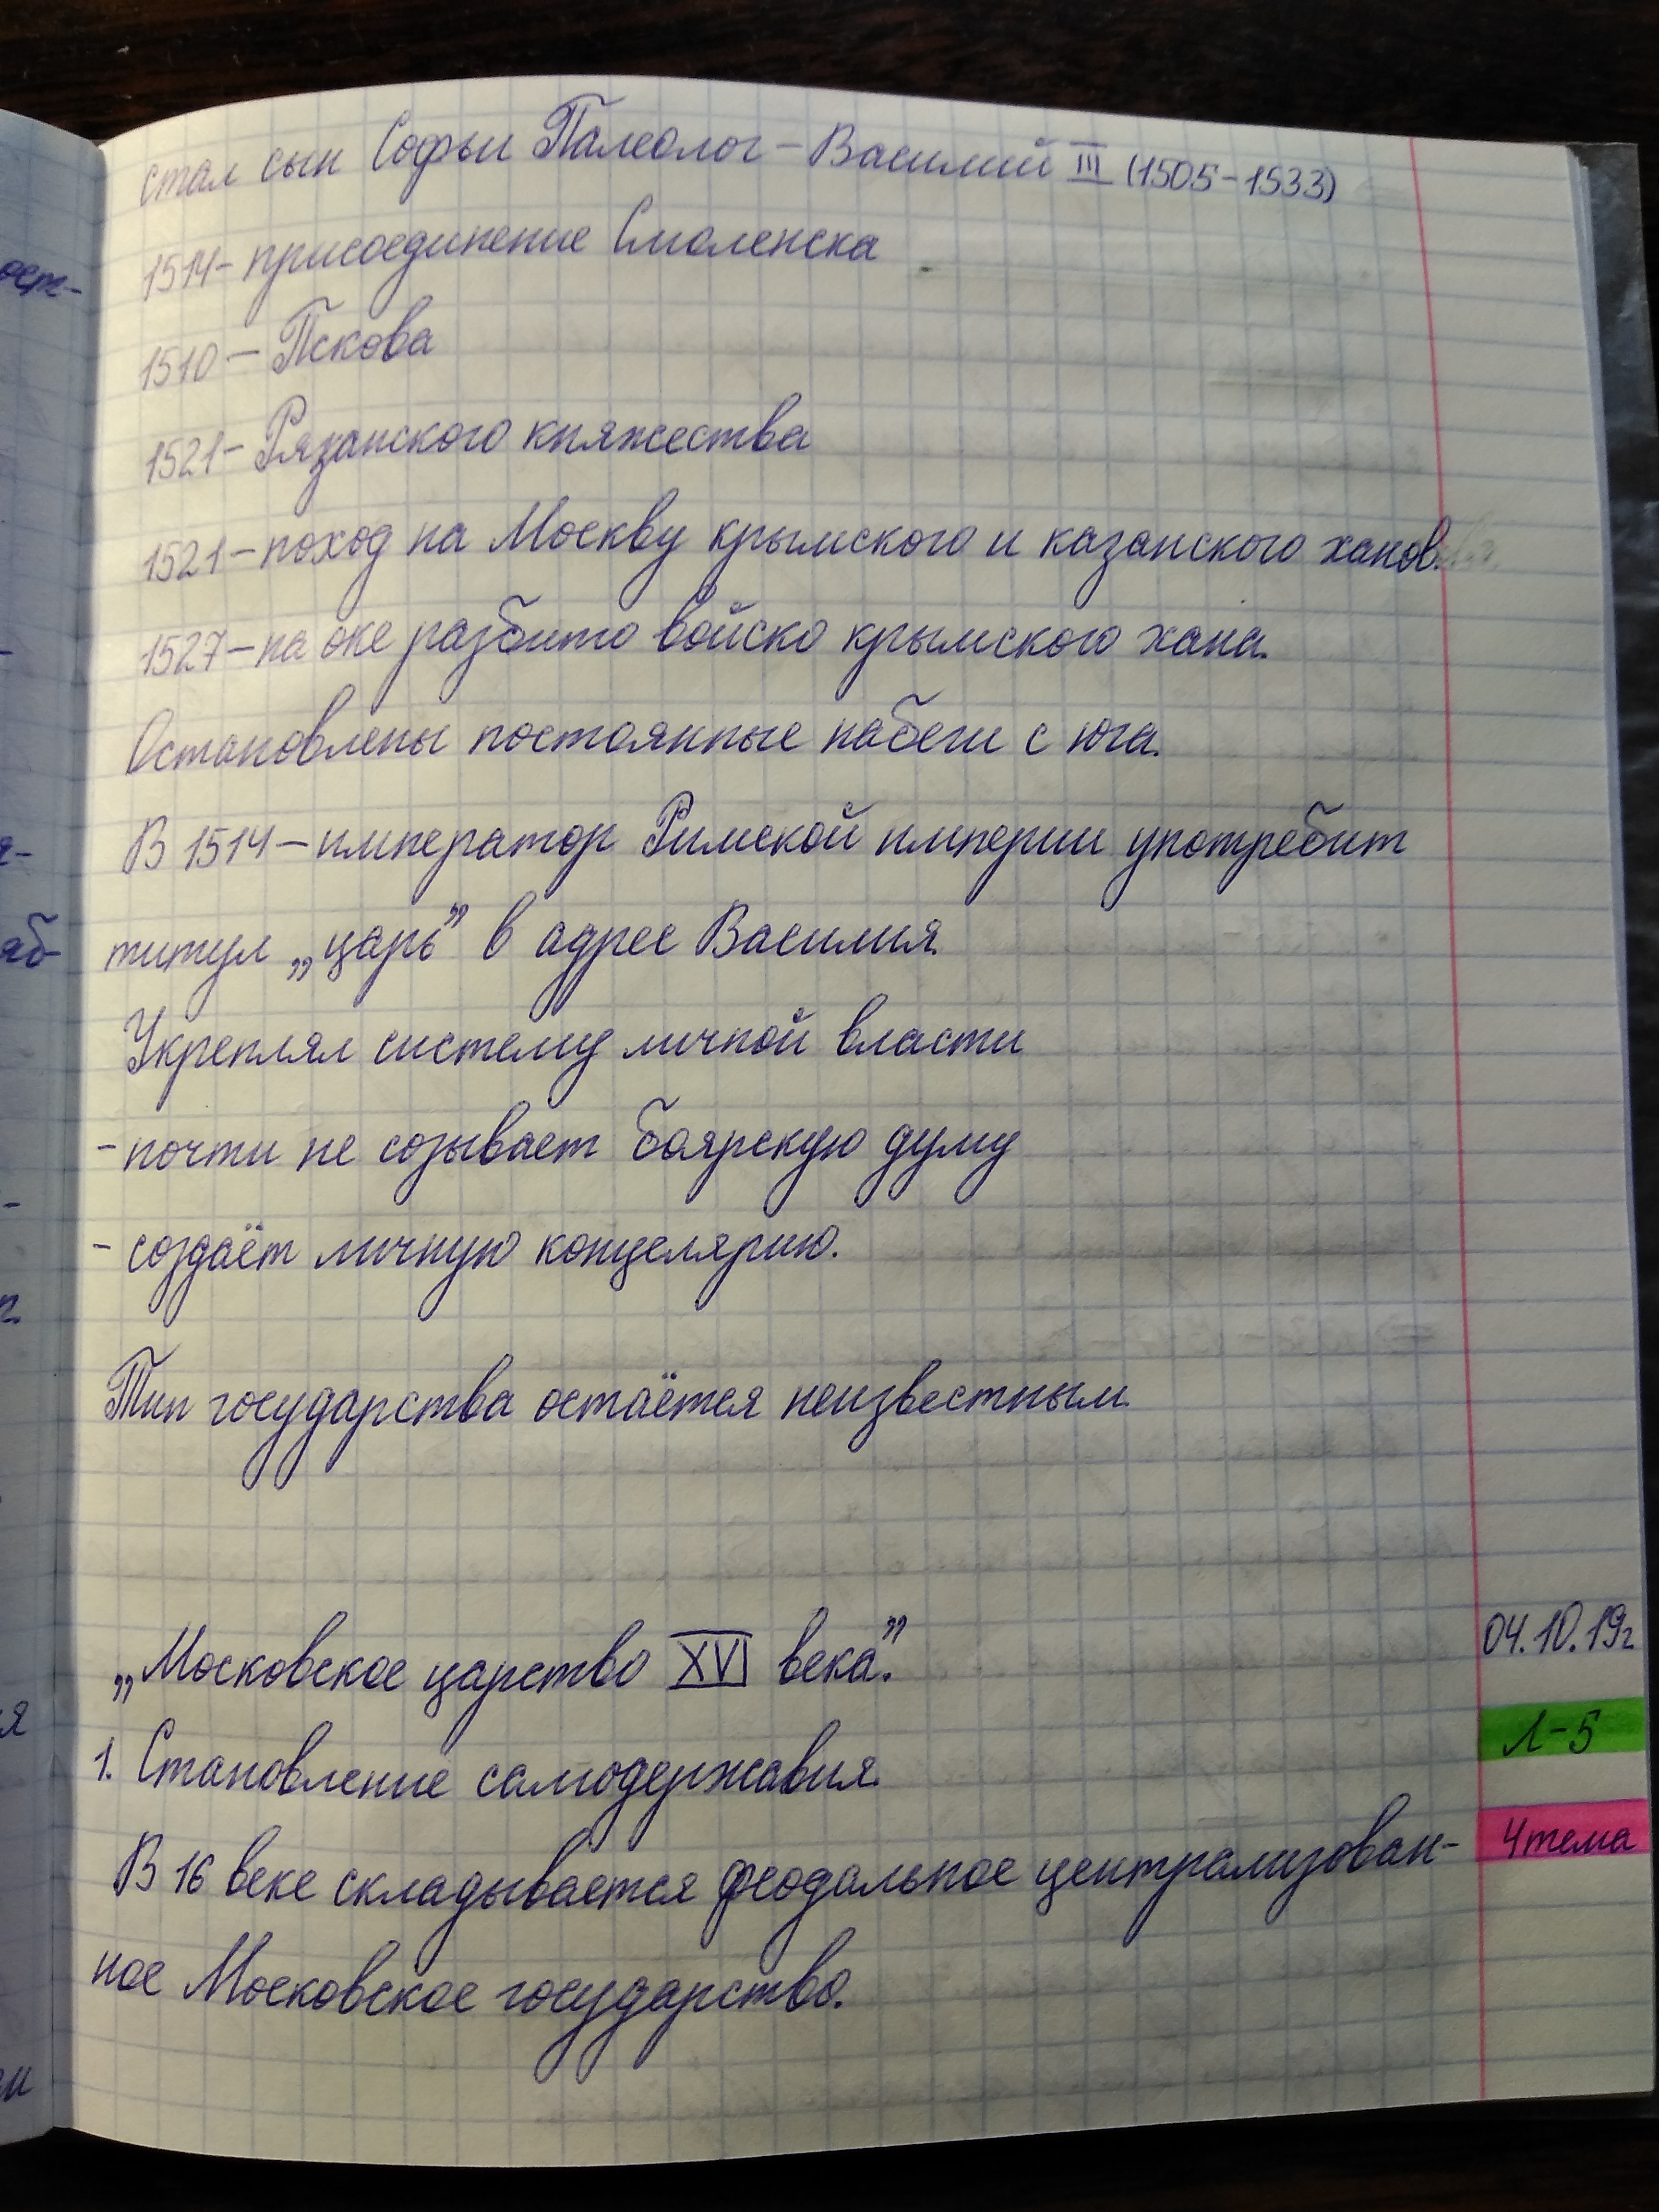 стал сын Софьи Палеолог – Василий III (1505-1533)
1514- присоединение Смоленска
1510 – Пскова
1521- Рязанского княжества
1521 – поход на Москву крымского и казанского ханов.
1527 – на оке разбито войско крымского хана.
Остановлены постоянные набеги с юга.
В 1514 – император Римской империи употребит
титул „царь” в адрес Василия.
Укреплял систему личной власти
- почти не созывает боярскую думу
- создаёт личную концелярию.
Тип государства остаётся неизвестным.
04.10.19г
„Московское царство XVI века.”
Л-5
1. Становление самодержавия.
4 тема
В 16 веке складывается феодальное централизован-
ное Московское государство.